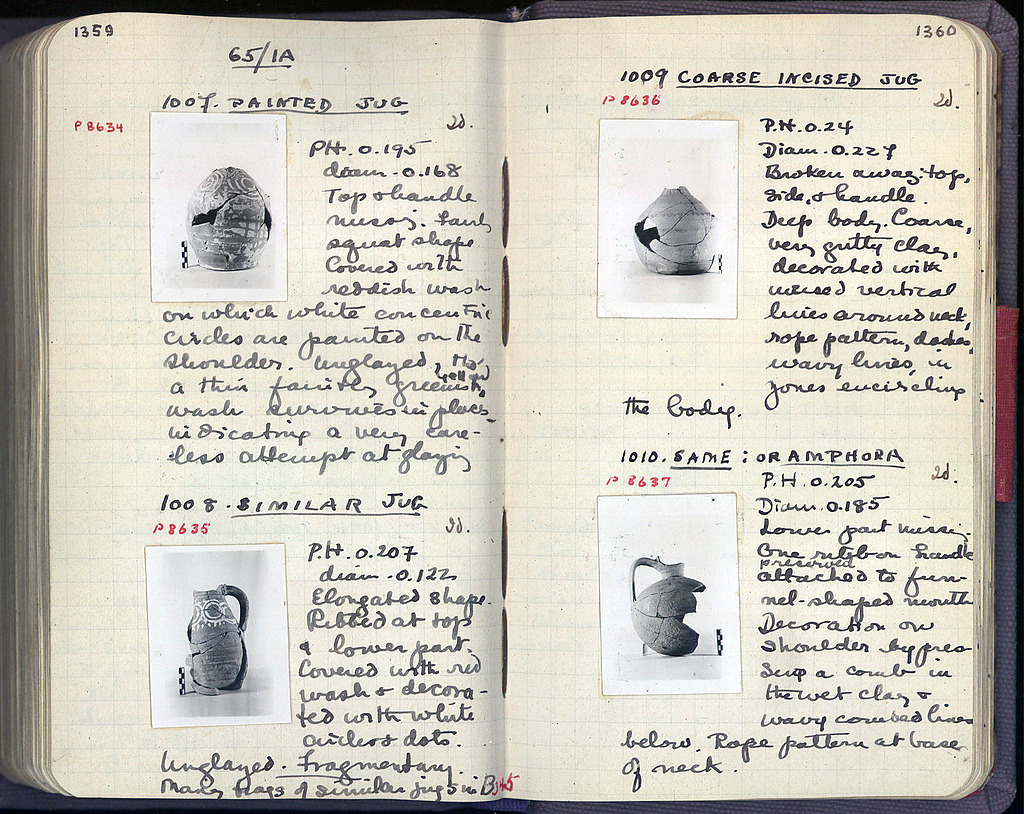 1359
65/1A
1007. PAINTED JUG
P 8634
2d.
PH. 0.195
diam. 0.168
Top & handle
squat shape
Covered with
reddish wash
on which white concentric
circles are painted on the
shoulder. Unglazed, tho'
a thin faintly greenish, yellow
wash survives in places
indicating a very care-
less attempt at glazing
1008. SIMILAR JUG
P 8635
2d.
P.H. 0.207
diam. 0.122
Elongated shape.
Ribbed at top
& lower part.
Covered with red
wash & decora-
ted with white
circles & dots.
Unglazed. Fragmentary.
Many frags of similar jugs in B 345
1360
1009 COARSE INCISED JUG
P 8636
2d.
P.H. 0.24
Diam. 0.227
Broken away: top,
side, & handle.
Deep body. Coarse,
very gritty clay,
decorated with
incised vertical
lines around neck,
rope pattern, dashes,
wavy lines, in
zones encircling
the body.
1010. SAME: OR AMPHORA
P 8637
2d.
P.H. 0.205
Diam. 0.185
Lower part missing.
One ribbon handle
preserved
attached to fun-
nel-shaped mouth
Decoration on
shoulder by pres
sing a comb in
the wet clay &
wavy combed lines
below. Rope pattern at base
of neck.